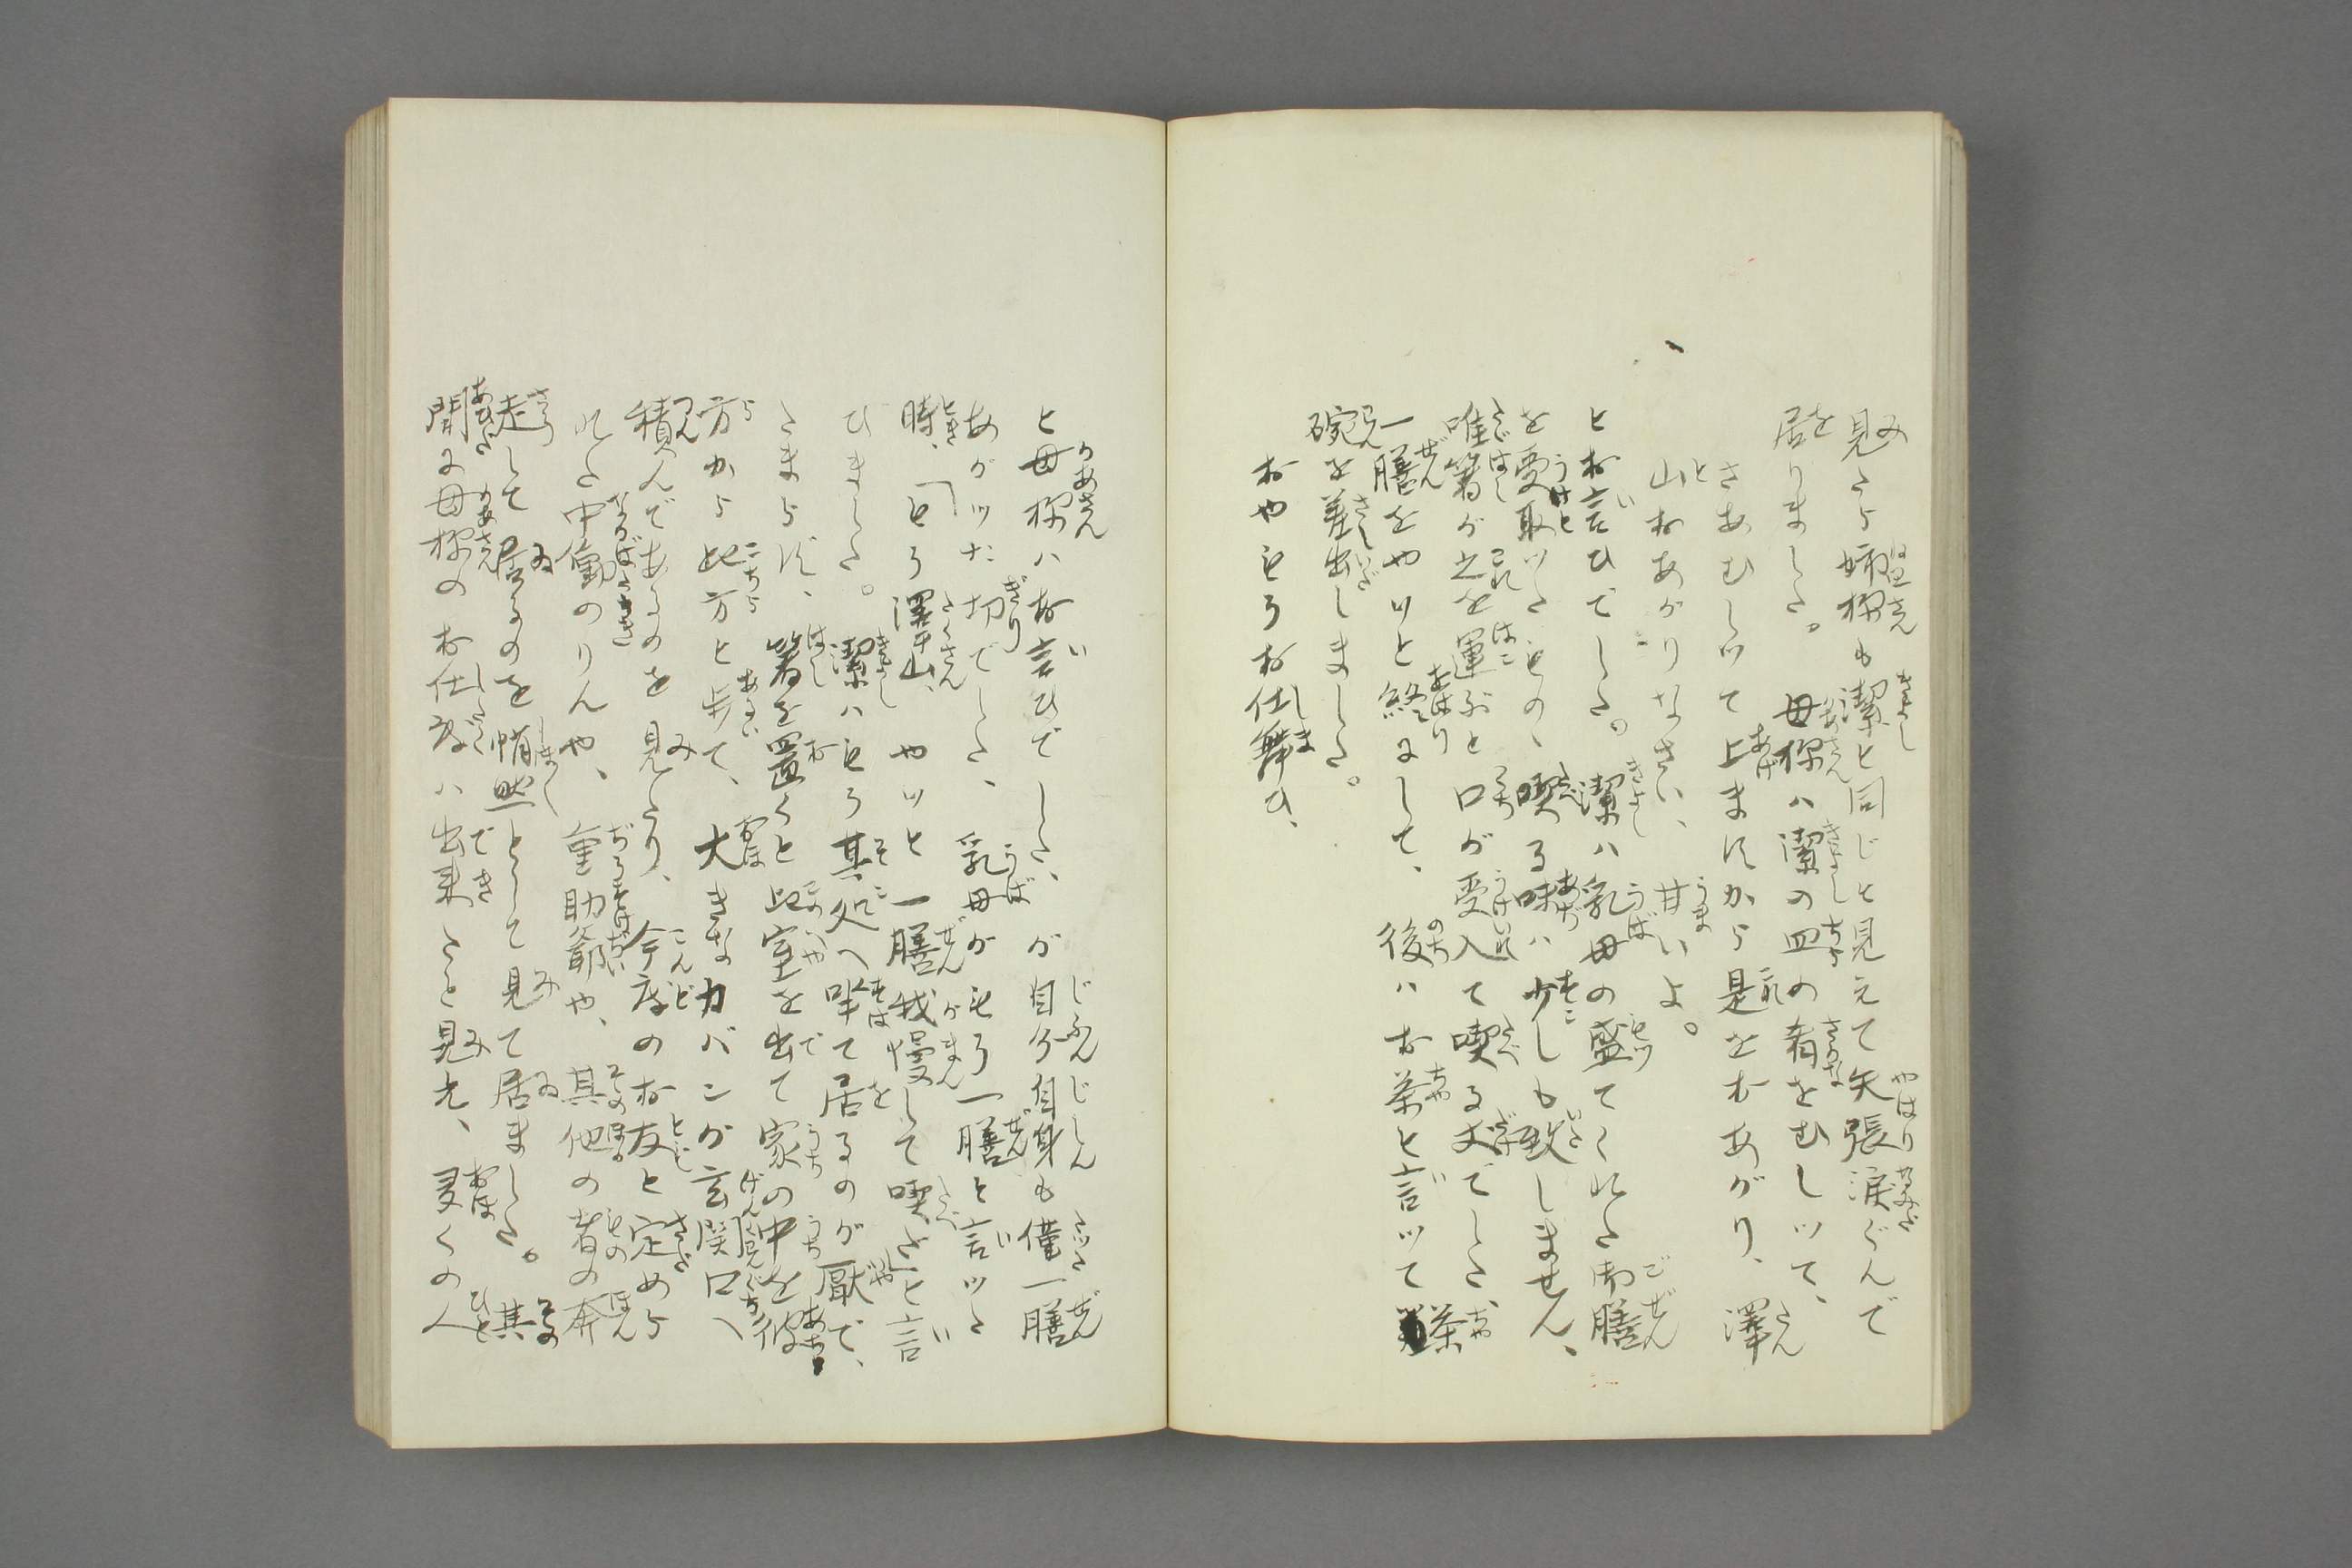 見たら姉樣も潔と同じと見えて矢張涙ぐんで
居りました。母樣ハ潔の皿の肴をむしツて、
さあむしツて上ますから是をおあがり、澤
山おあがりなさい、甘いよ。
とお言ひでした。潔ハ乳母の盛てくれた御膳
を受取ツたものゝ喫る味ハ少しも致しません、
唯箸が之を運ぶと口が受入て喫る丈でした、
一膳をやツと終にして、後ハお茶と言ツて茶
碗を差出しました。
おやもうお仕舞ひ、
と母樣ハお言ひでした、が自分自身も僅一膳
あがツた切でした、乳母がもう一膳と言ツた
時、「もう澤山、やツと一膳我慢して喫た」と言
ひました。潔ハもう其処へ坐て居るのが厭で、
たまらず、箸を置くと此室を出て家の中を彼
方から此方と歩て、大きなカバンが玄関口へ
積んであるのを見たり、今度のお友と定めら
れた中働のりんや、重助爺や、其他の者の奔
走して居るのを悄然として見て居ました。其
間に母樣のお仕度ハ出来たと見え、多くの人